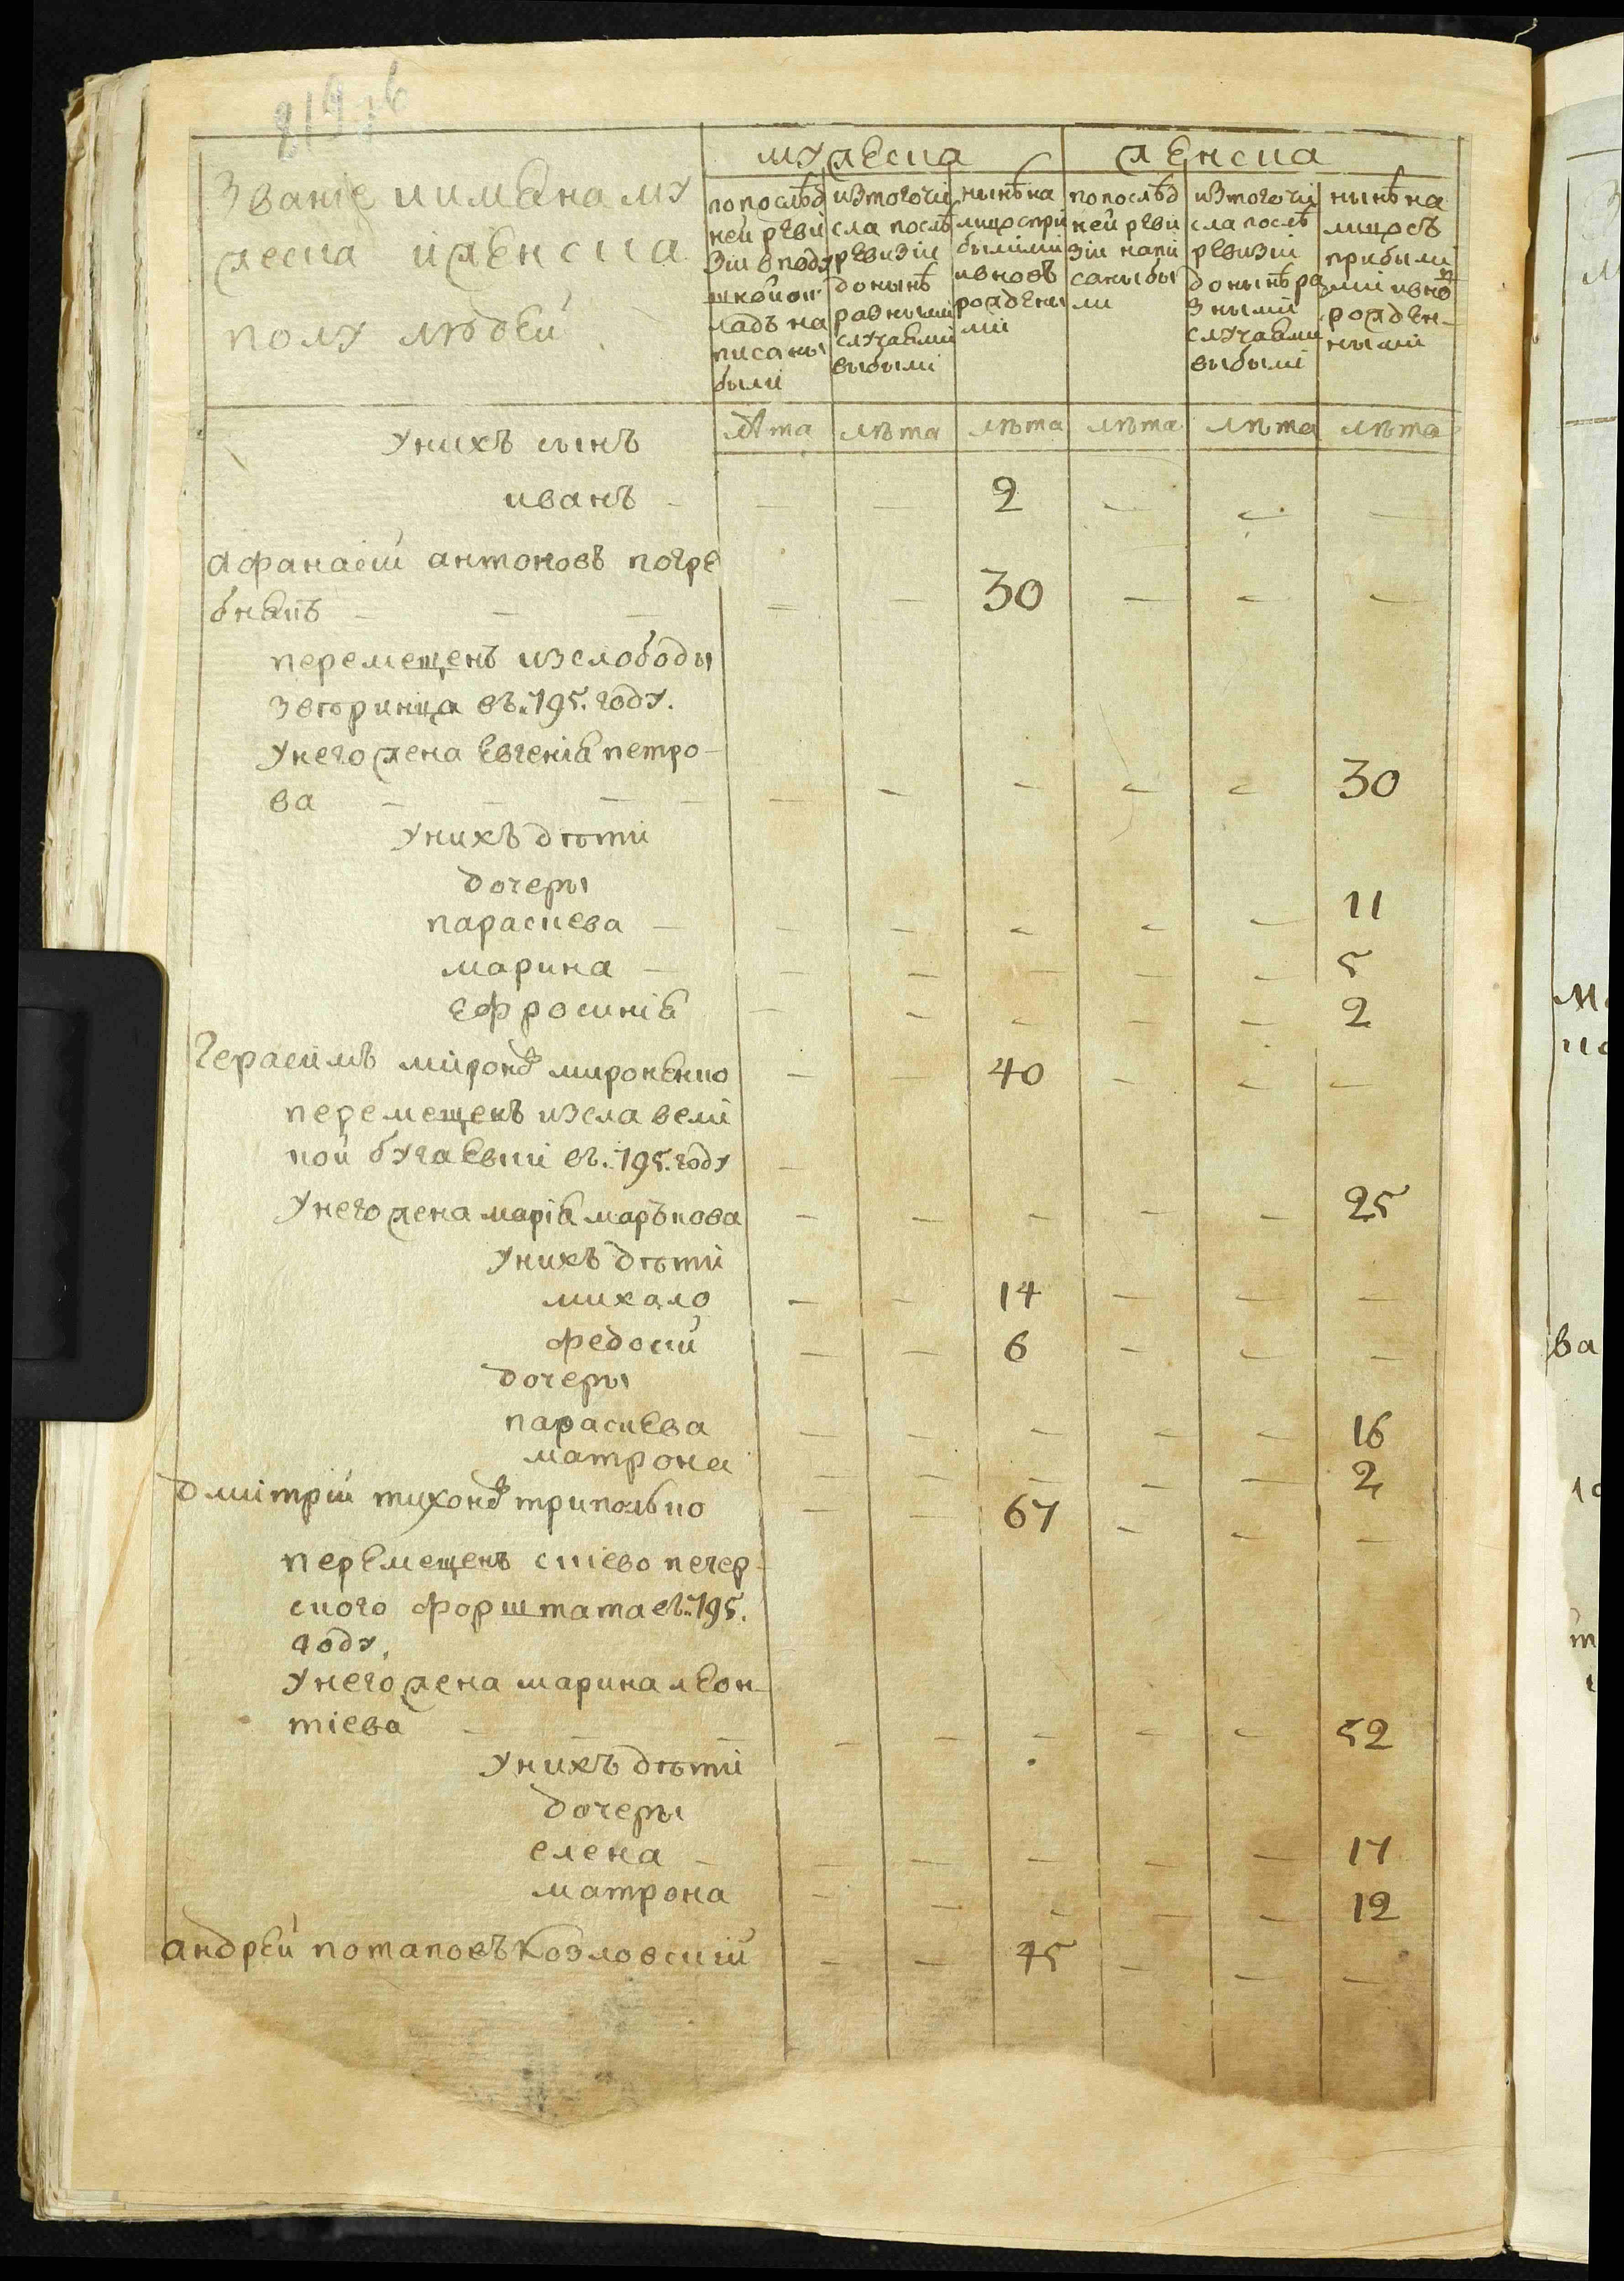 мужеска женска
Званіе иимена му
жеска иженска
полу людей
попослѣд
ней реви
зіи вподу
шной ок
ладъ на
писаны
были
изтогочи
сла послѣ
ревизіи
донынѣ
разными
случаями
выбыли
нынѣна
лицо спри
былими
ивновъ
рожденны
ми
попослѣд
ней реви
зіи напи
саны бы
ли
изтогочи
сла послѣ
ревизіи
донынѣ ра
зными
случаями
выбыли
нынѣ на
лицо съ
прибыли
ми ивно
рожден-
ными
лѣта лѣта лѣта лѣта лѣта лѣта
Унихъ сынъ
иванъ - - - 2 - - -
Афанасій антоновъ погре
бнякъ - - - - - 30 - - -
перемещенъ изслободы
зворинца въ.795.году.
Унего жена Евгенія петро-
ва - - - - - - - - - 30
Унихъ дѣти
дочеры
параскева - - - - - - 11
марина - - - - - - 5
Ефросинія - - - - - 2
Герасимъ миронов мироненко - - 40 - - -
перемещенъ изсла вели
кой бугаевки въ.795.году -
Унего жена марія марькова - - - - - 25
Унихъ дѣти
михайло - - 14 - - -
федосій - - 6 - - -
дочеры
параскева - - - - - 16
матрона - - - - - 2
дмитрій тихонов триполько - - 67 - - -
перемещенъ скіево печер-
ского форштата въ.795.
году.
Унего жена марина леон-
тіева - - - - - - - 52
Унихъ дѣти
дочеры
елена - - - - - - 17
матрона - - - - - 12
андрей потаповъ Козловскій - - 45 - - -